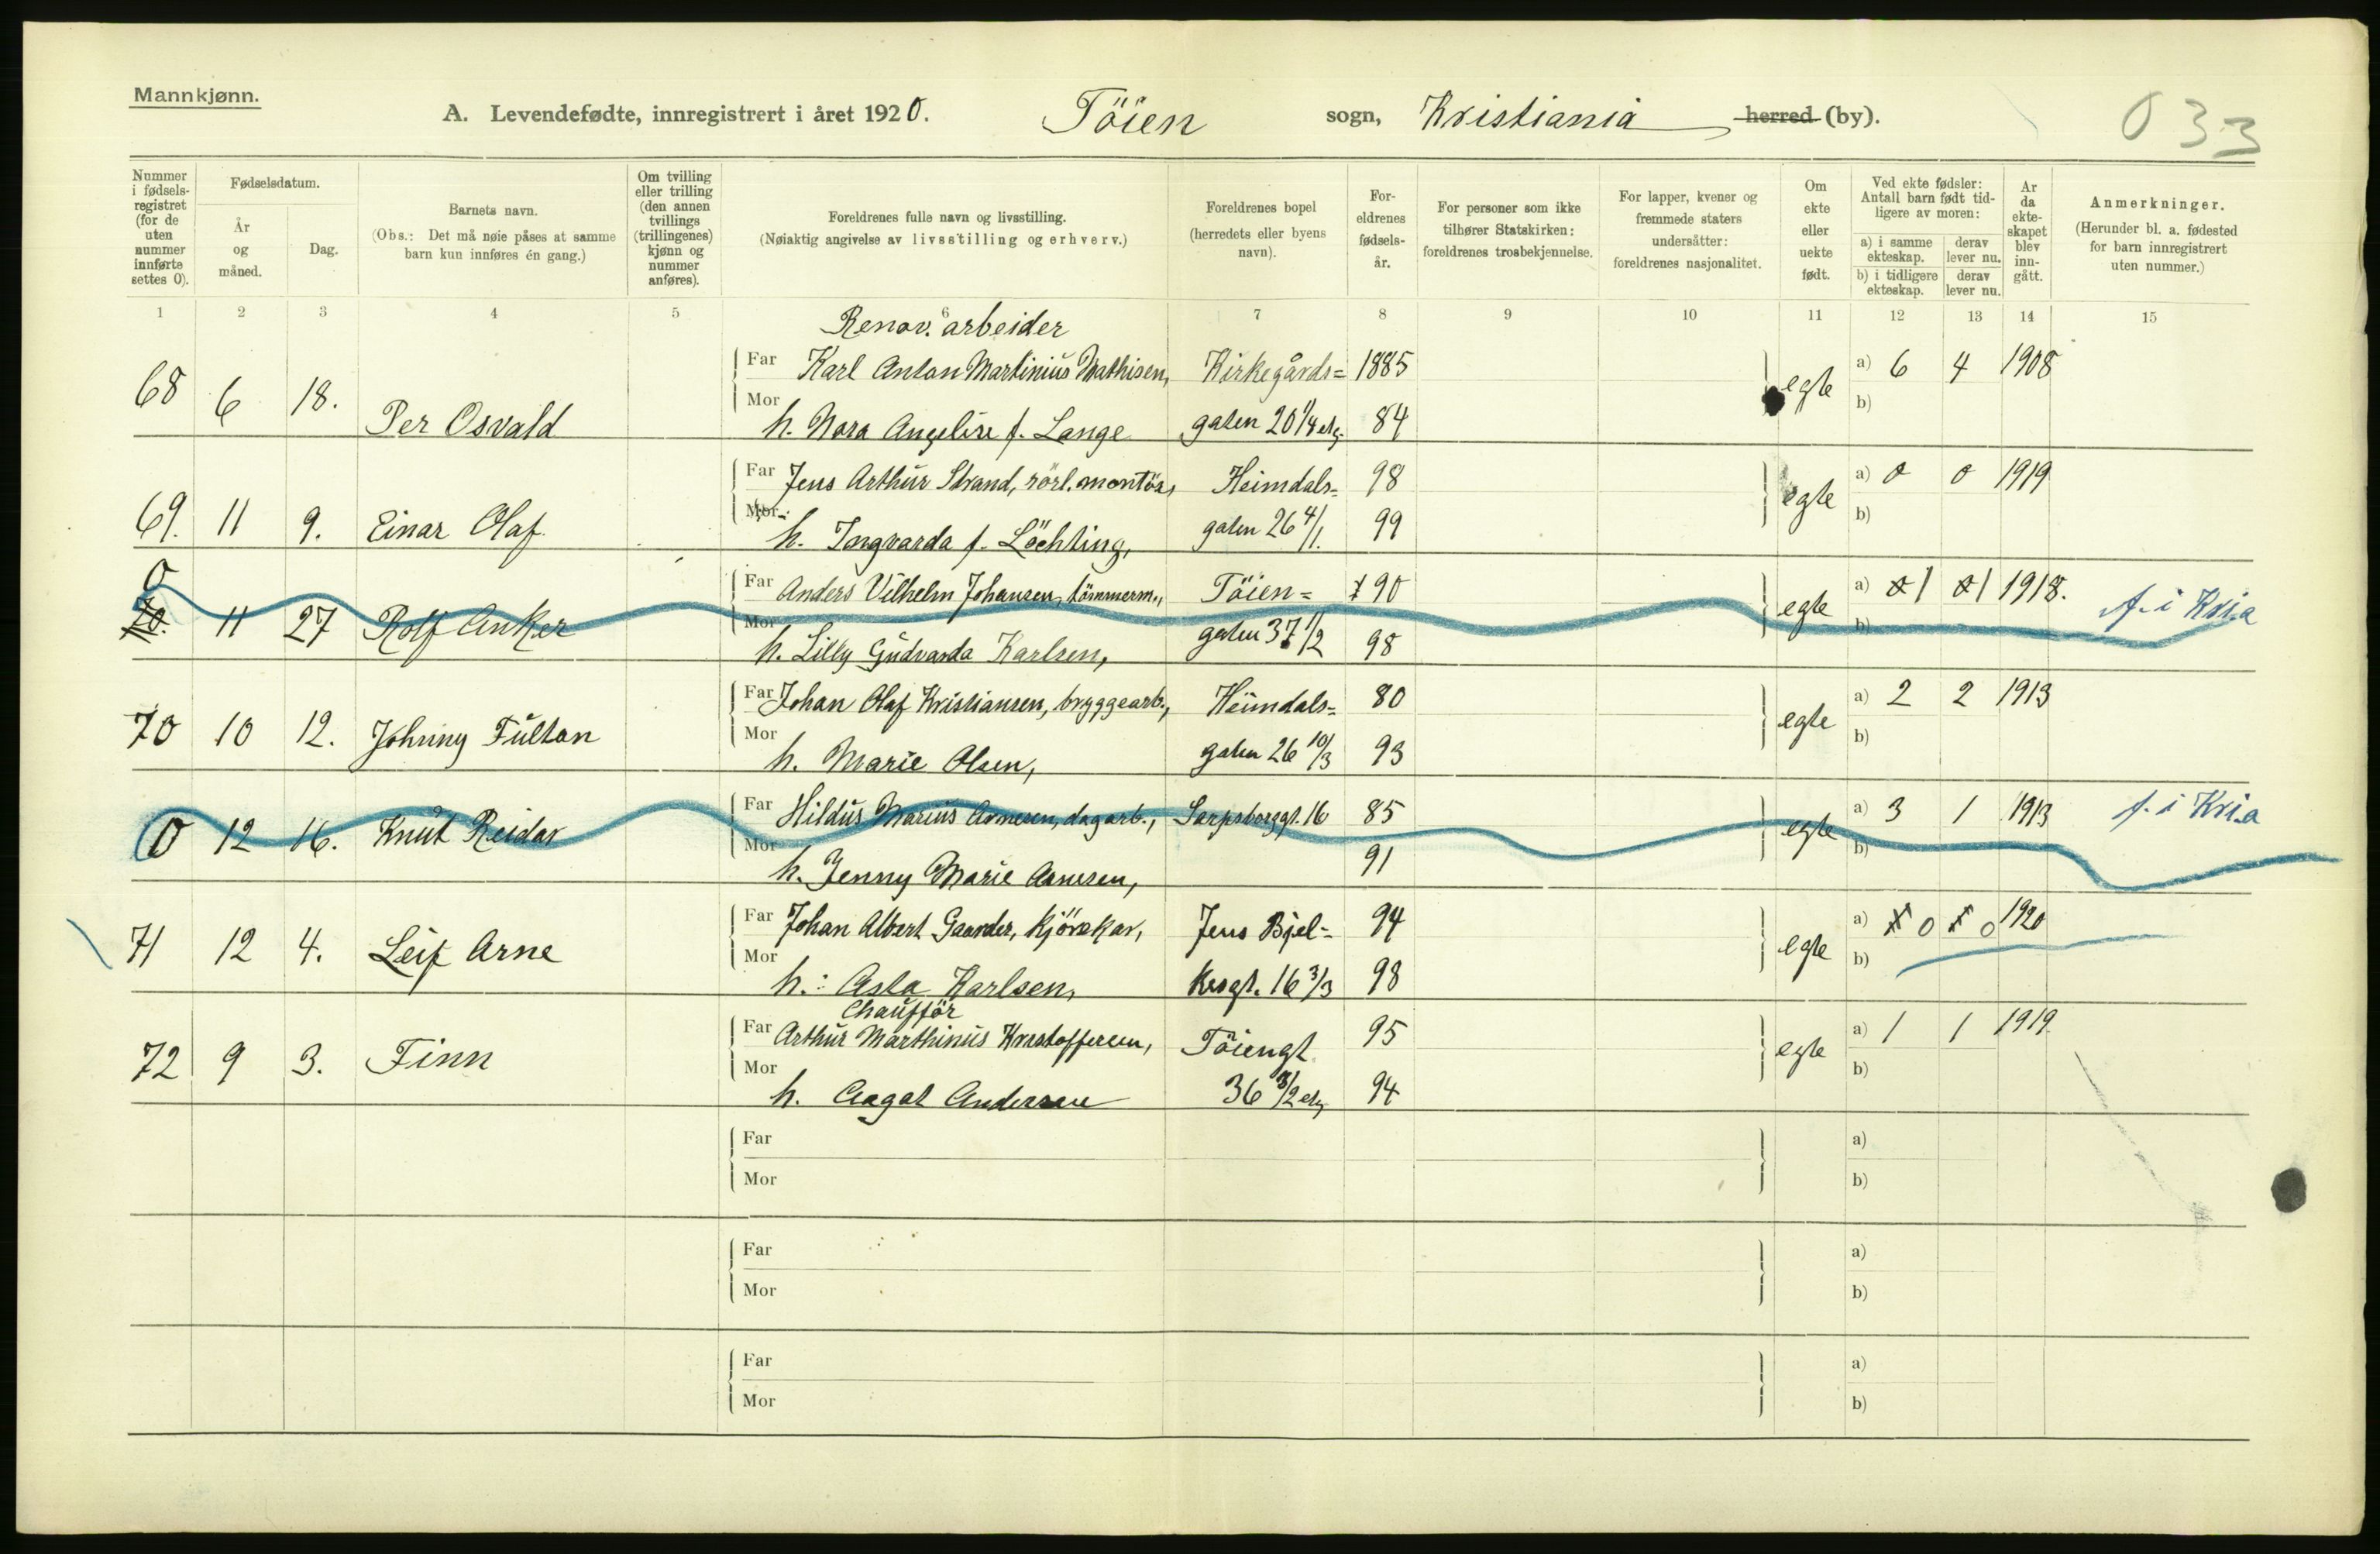 Mannkjønn.
A. Levendefødte, innregistrert i året 1920. Töien sogn, Kristiania herred (by).
033
Nummer i fødsels-registret (for de uten nummer innførte settes 0).
Fødselsdatum.
År og måned.
Dag.
Barnets navn.
(Obs.: Det må nøie påses at samme barn kun innføres én gang.)
Om tvilling eller trilling (den annen tvillings (trillingenes) kjønn og nummer anføres).
Foreldrenes fulle navn og livsstilling.
(Nøiaktig angivelse av livsstilling og erhverv.)
Foreldrenes bopel (herredets eller byens navn).
For-eldrenes fødsels-år.
For personer som ikke tilhører Statskirken: foreldrenes trosbekjennelse.
For lapper, kvener og fremmede staters undersåtter: foreldrenes nasjonalitet.
Om ekte eller uekte født.
Ved ekte fødsler: Antall barn født tid-ligere av moren:
a) i samme ekteskap. derav lever nu.
b) i tidligere ekteskap. derav lever nu.
År da ekte-skapet blev inn-gått.
Anmerkninger.
(Herunder bl. a. fødested for barn innregistrert uten nummer.)
1 2 3 4 5 6 7 8 9 10 11 12 13 14 15
Renov. arbeider
68 6 18. Per Osvald Far Karl Anton Martinius Mathisen, Kirkegårds= 1885 egte a) 6 4 1908
Mor h. Nora Angelire f. Lange gaten 20 1/4 etg. 84 b)
69. 11 9. Einar Olaf. Far Jens Arthur Strand, rörl. montör, Heimdals= 98 egte a) 0 0 1919
Mor h. Ingvarda f. Löchting, gaten 26 4/1. 99 b)
0
70. 11 27 Rolf Anker Far Anders Vilhelm Johansen, tömmerm., Töien= 90 egte a) 1 1 1918. f. i Kria
Mor h. Lilly Gudvarda Karlsen, gaten 37 1/2 98 b)
70 10 12. Johnny Fulton Far Johan Olaf Kristiansen, bryggearb., Heimdals= 80 egte a) 2 2 1913
Mor h. Marie Olsen, gaten 26 10/3 93 b)
0 12 16. Knut Reidar Far Hildus Marius Arnesen, dagarb., Sarpsborggt. 16 85 egte a) 3 1 1913 f. i Kria
Mor h. Jenny Marie Arnesen, 91 b)
71 12 4. Leif Arne Far Johan Albert Gaarder, kjörekar, Jens Bjel= 94 egte a) 0 0 1920
Mor h. : Asta Karlsen, kesgt. 16 3/3 98 b)
Chaufför
72 9 3. Finn Far Arthur Marthinus Kristoffersen, Töiengt. 95 egte a) 1 1 1919
Mor h. Aagot Andersen 36 3/2 etg 94 b)
Far a)
Mor b)
Far a)
Mor b)
Far a)
Mor b)